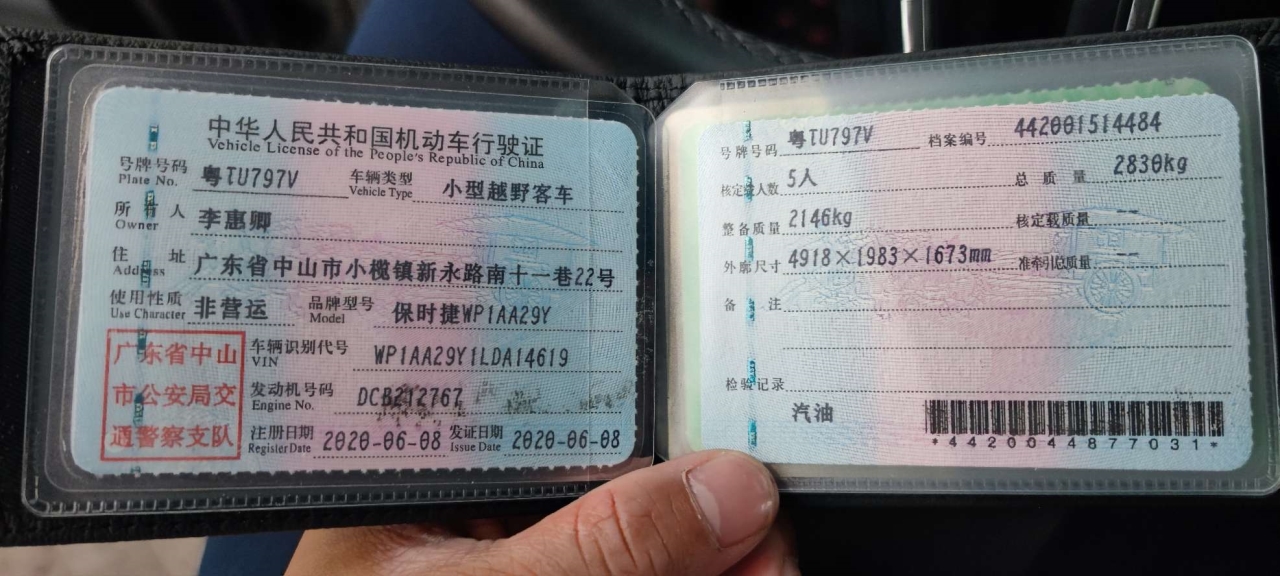 中华人民共和国机动车行驶证
Vehicle License of the People's Republic of China
号牌号码 粤TU797V 车辆类型 小型越野客车
Plate No. Vehicle Type
所有人 李惠卿
Owner
住址 广东省中山市小榄镇新永路南十一巷22号
Address
使用性质 非营运 品牌型号 保时捷WP1AA29Y
Use Character Model
广东省中山
市公安局交
通警察支队
车辆识别代号 WP1AA29Y1LDA14619
VIN
发动机号码 DCB212767
Engine No.
注册日期 2020-06-08 发证日期 2020-06-08
Register Date Issue Date
号牌号码 粤TU797V 档案编号 442001514484
核定载人数 5人 总质量 2830kg
整备质量 2146kg 核定载质量 --
外廓尺寸 4918×1983×1673mm 准牵引总质量 --
备注
检验记录
汽油
*4420044877031*